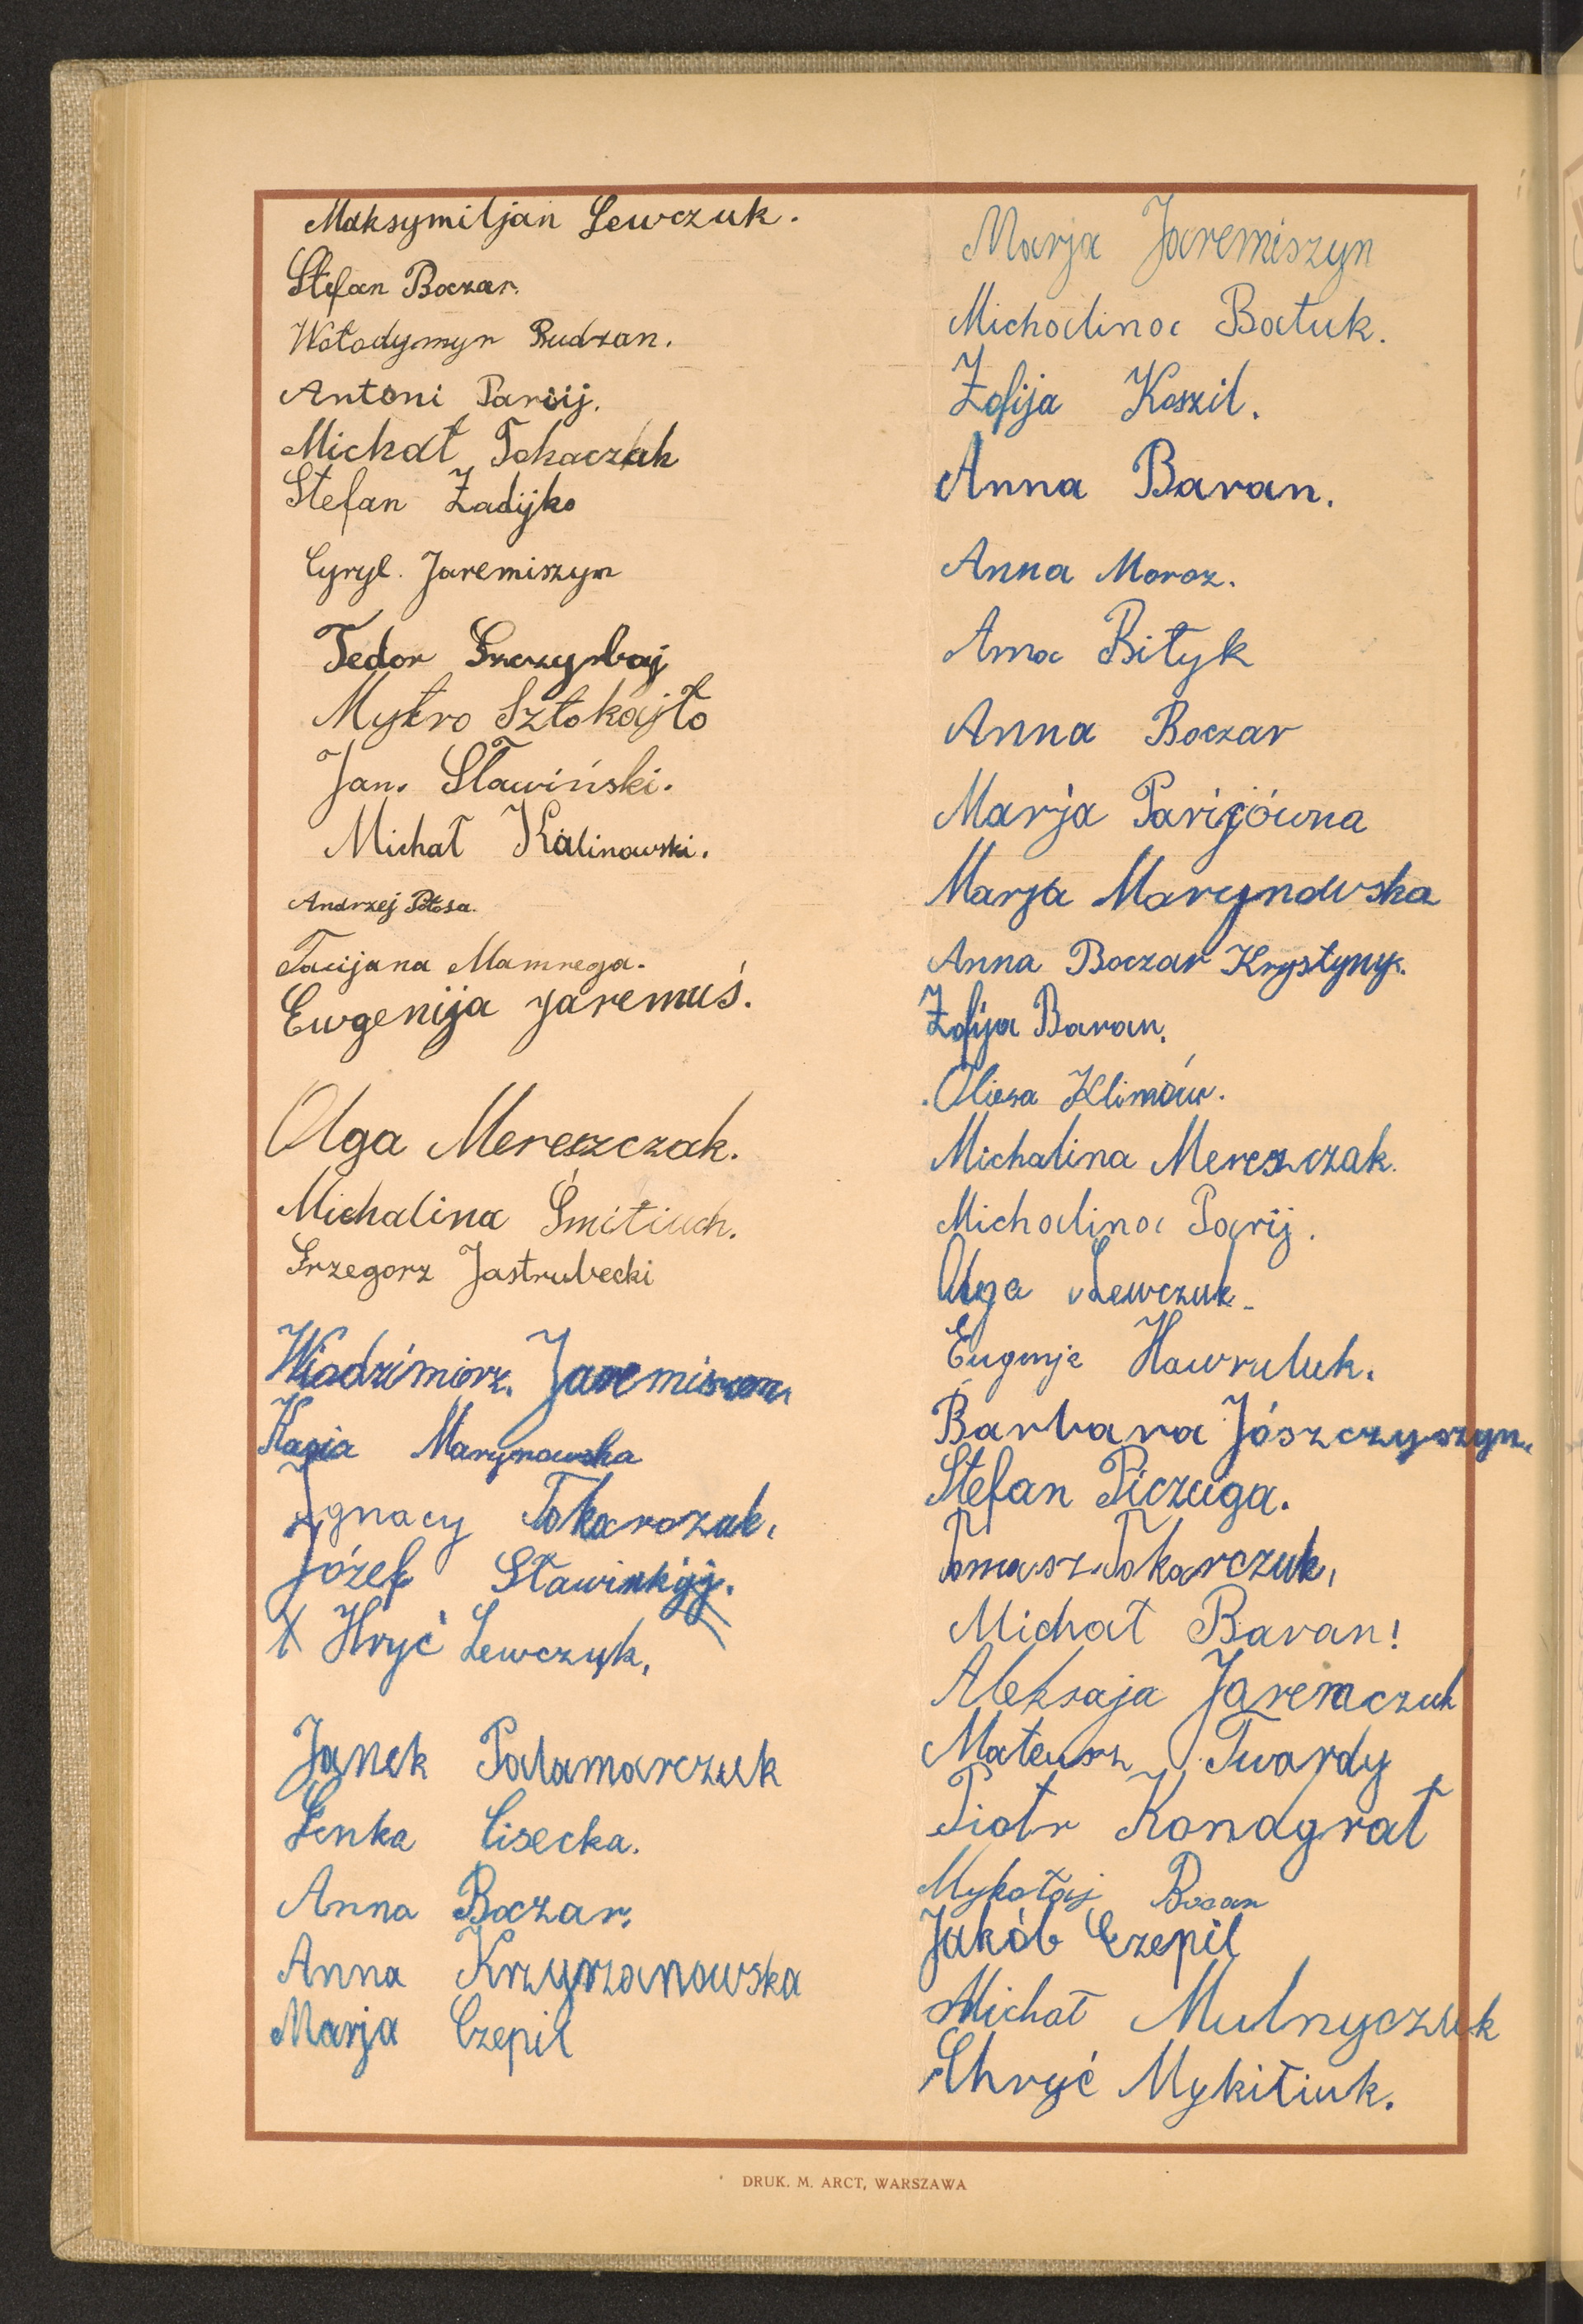 Maksymiljan Lewczuk.
Stefan Boczar.
Wołodymyr Rudzan.
Antoni Parij.
Michał Tokaczuk
Stefan Zadijko
Cyryl. Jaremiszyn
Fedor Szczyrbaj
Mytro Sztokajło
Jan. Sławiński.
Michał Kalinowski.
Andrzej Połosa.
Tacijana Mamrega.
Ewgenija Jaremuś.
Olga Mereszczak.
Michalina Smitiuch.
Grzegorz Jastrubecki
Józef Sławinkij.
X Hryć Lewczyk.
Janek Palamarczuk
Lenka Cisecka.
Anna Boczar.
Anna Krzyrzanowska
Marja Czepil
Marja Jaremiszyn
Michalina Batuk.
Zofija Koszil.
Anna Baran.
Anna Moroz.
Anna Bityk
Anna Boczar
Marja Parijówna
Marja Marynowska
Anna Boczar Krystyny.
Zofija Baran.
Klimów.
Michalina Mereszczak.
Michalina Parij.
Olga Lewczuk.
Eugenja Hawruluk.
Barbara Jószczyszyn.
Stefan Piczuga.
Tomasz Tokarczuk,
Michał Baran!
Aleksaja Jaremczuk
Mateusz Twardy
Piotr Konagrat
Mykołaj
Jakób Czepil
Michał Mulnyczuk
Chryć Mykitiuk.
Kasia Marynowska
Ignacy Tokarczuk,
DRUK. M. ARCT, WARSZAWA